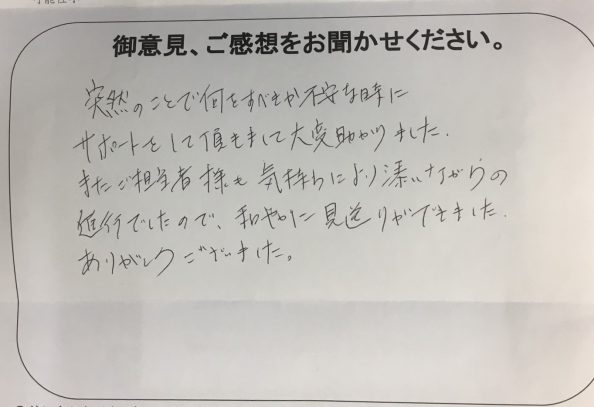 御意見、ご感想をお聞かせください。
突然のことで何をすべきか不安な時に
サポートをして頂きまして大変助かりました.
またご担当者様も気持ちにより添いながらの
進行でしたので、和やかに見送りができました.
ありがとうございました。